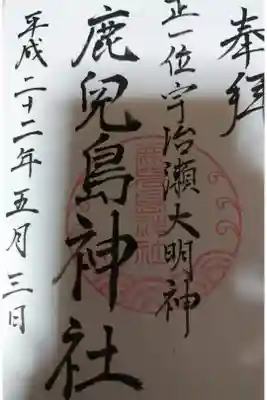 奉拜
正一位宇治瀬大明神
鹿兒島神社
平成二十二年五月三日